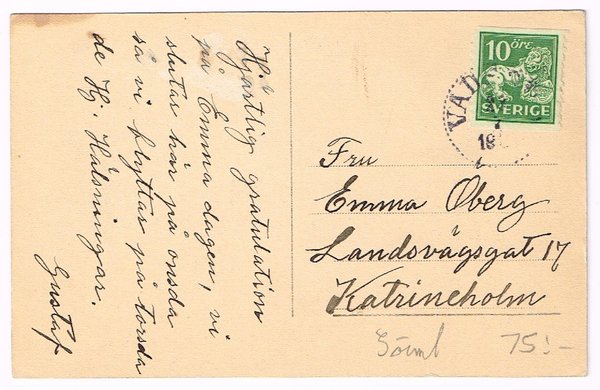 Hj. Hjärtlig gratulation
på Emma dagen, vi
slutar här på onsda
så vi flyttar på torsda
de Hj. Hälsningar.
Gustaf
10 ÖRE
SVERIGE
VAD
19
Fru
Emma Oberg
Landsvägsgat 17
Katrineholm
Söml
75:-